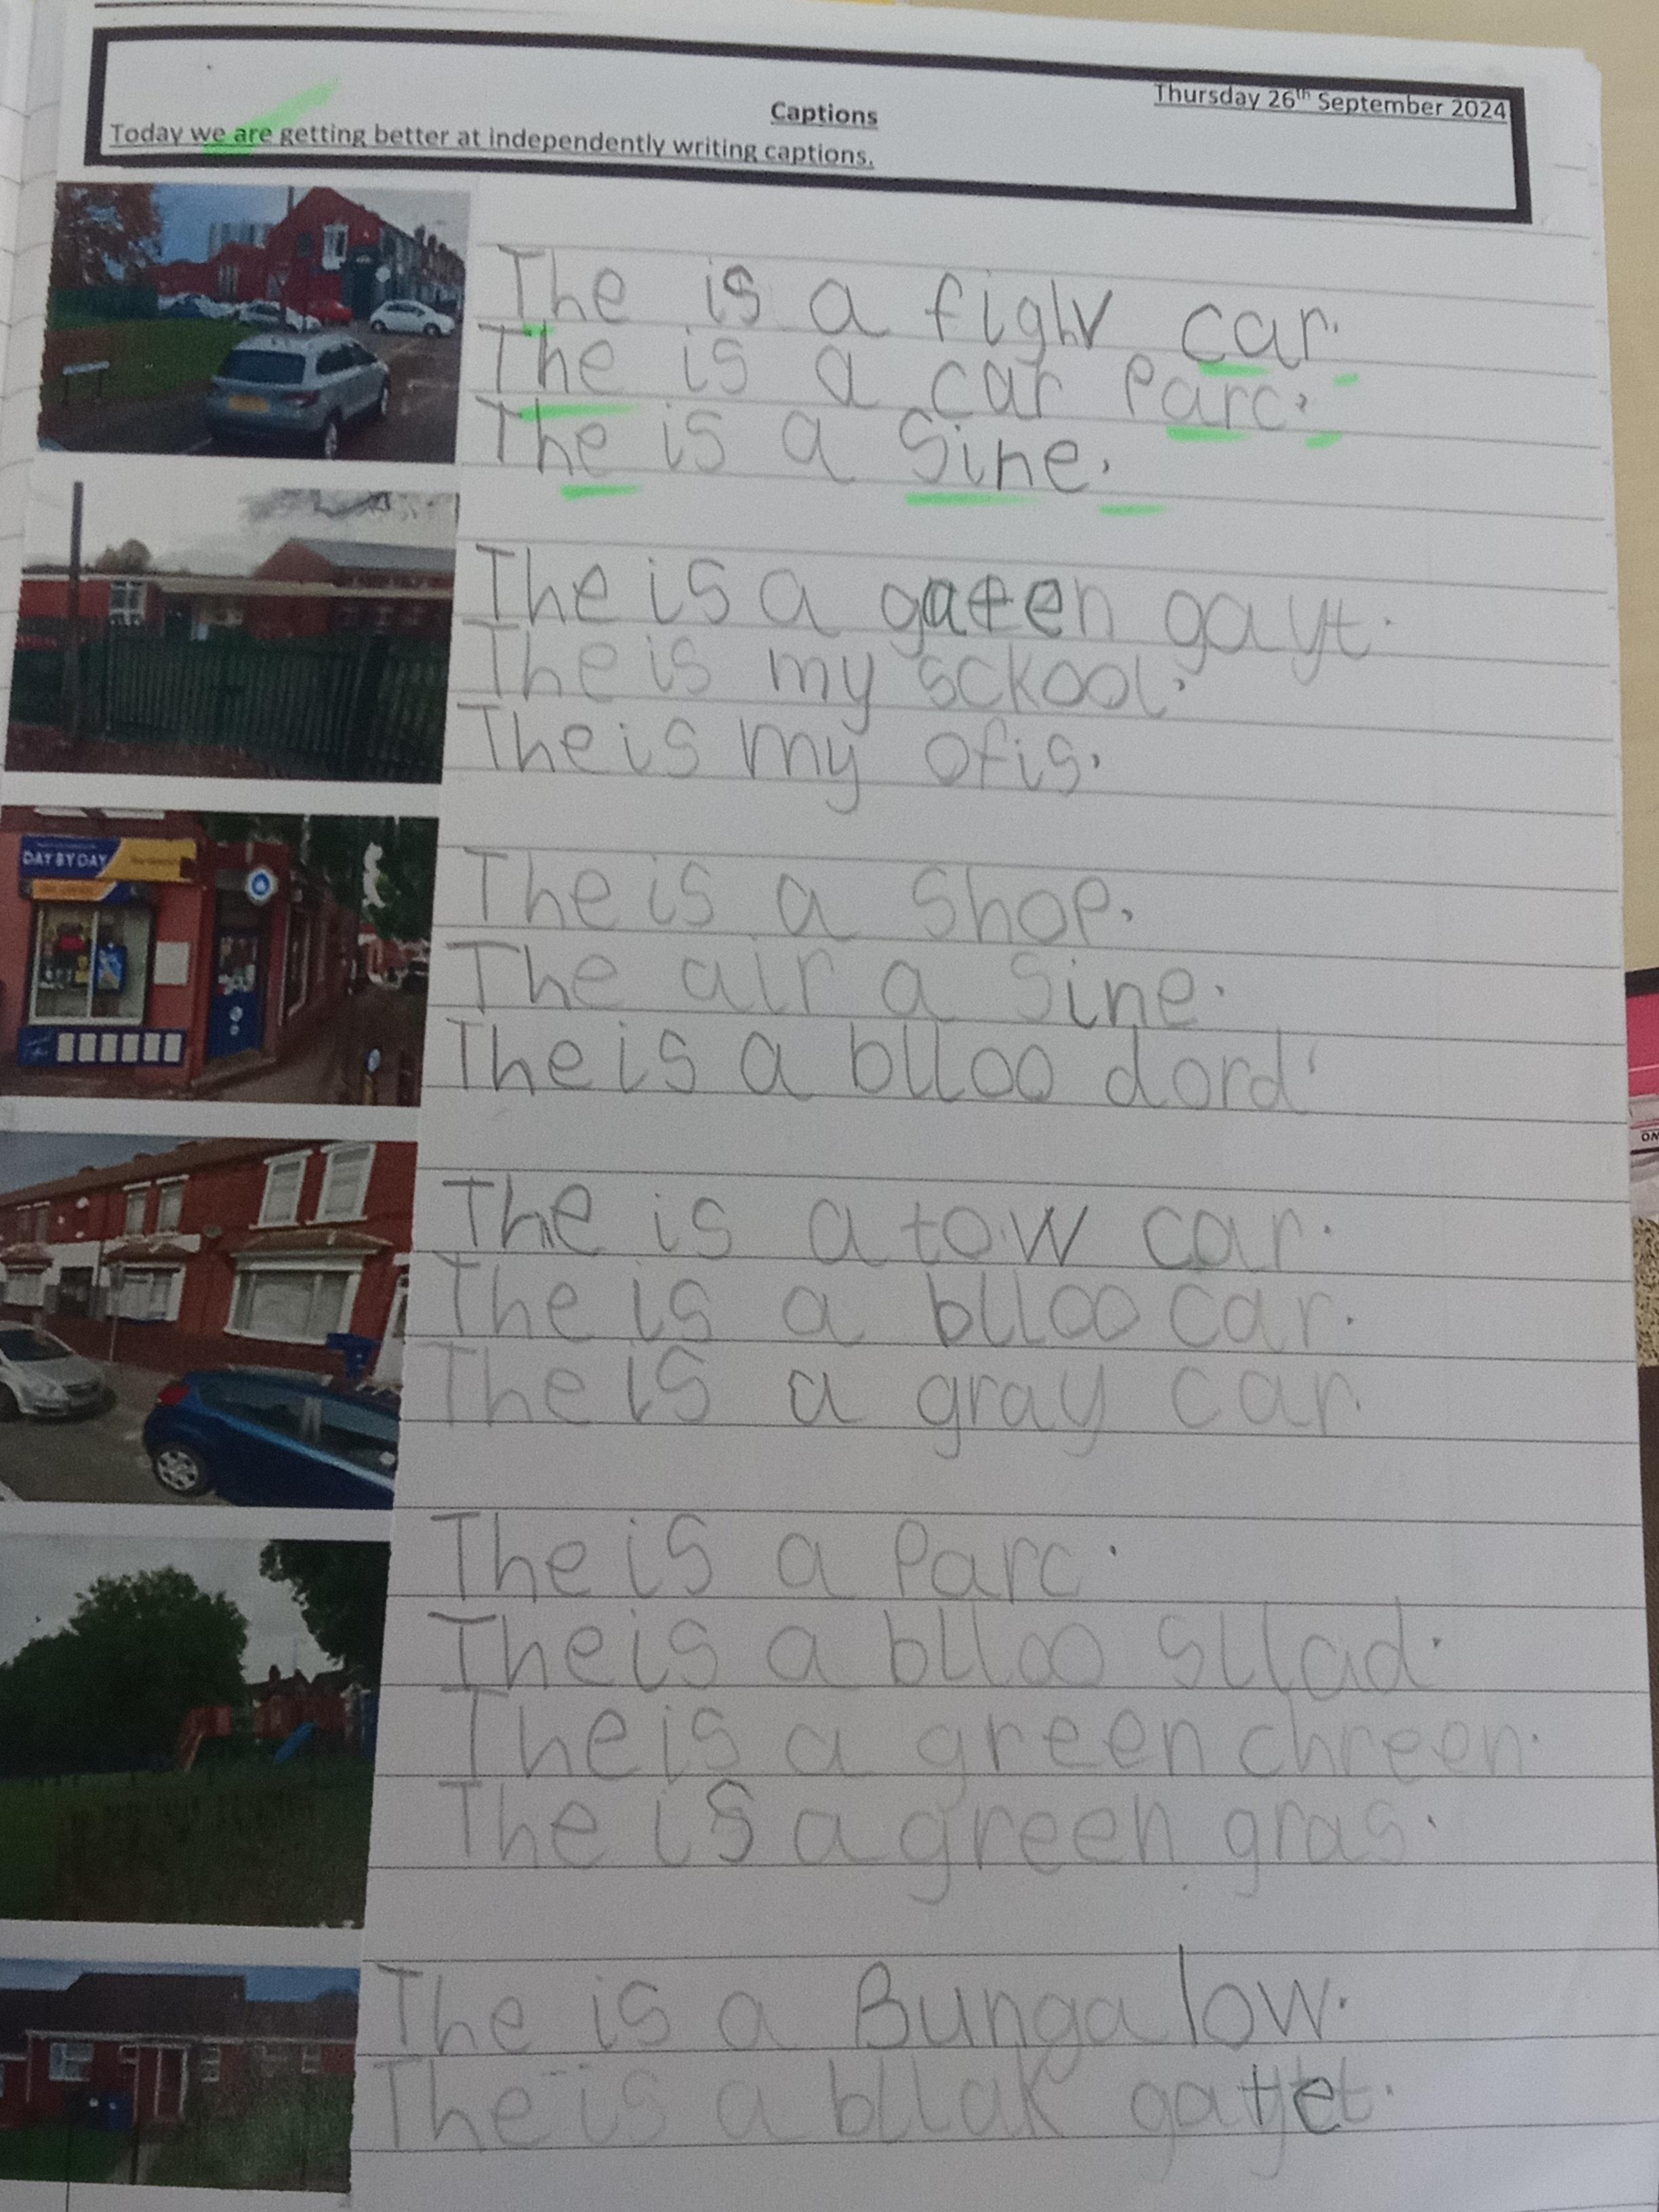 Thursday 26th September 2024
Captions
Today we are getting better at independently writing captions.
The is a fighv car.
The is a car Parc.
The is a Sine.
The is a gateen gayt.
The is my sckool.
The is my ofis.
DAY BY DAY
The is a Shop.
The air a Sine.
The is a blloo dord
The is a tow car.
The is a blloo car.
The is a gray car.
The is a Parc.
The is a blloo sllad.
The is a green chreen.
The is a green gras.
The is a Bungalow.
The is a bllak